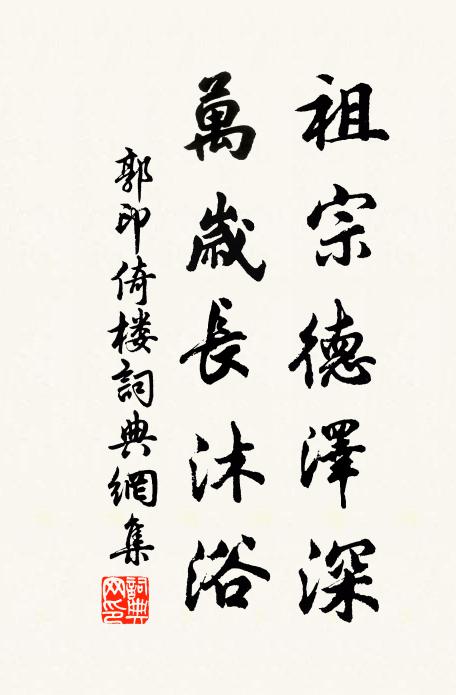 祖宗德澤深
萬歲長沐浴
郭印倚楼詞典網集
詞典